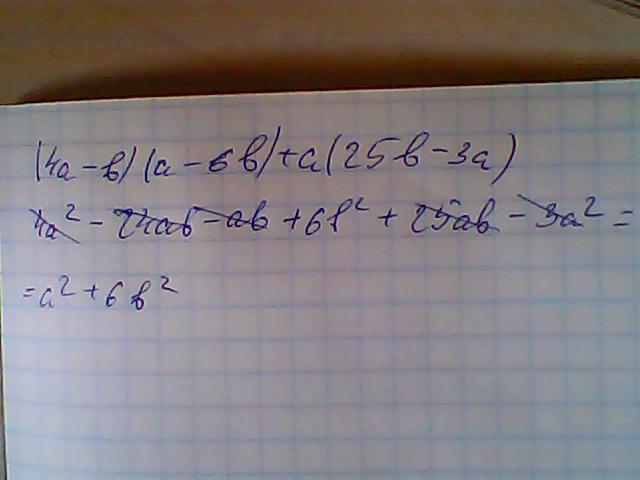 (4a-b)(a-6b)+a(25b-3a)
4a²-24ab-ab+6b²+25ab-3a²=
=a²+6b²